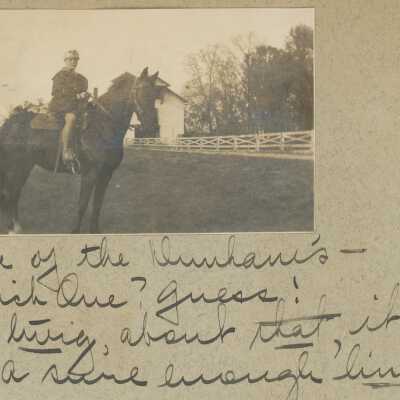 e of the Dunham's —
ich One? Guess!
twig, about that, it
a sure enough 'lim